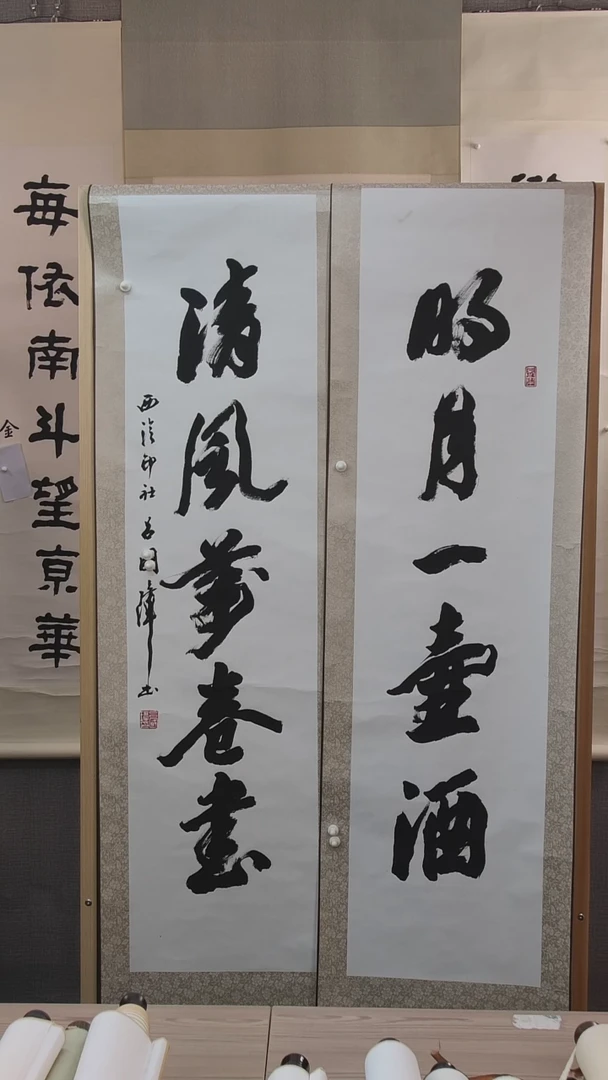 明月一壺酒
清風萬卷書
西泠印社 呂國璋書
每依南斗望京華
金